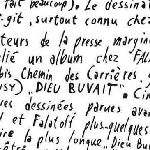 fait beaucoup). Le dessinat
-git, surtout connu chez
teurs de la presse margin
lié un album chez
bis Chemin des Carrières,
"DIEU BUVAIT". Cin
res dessinées parues avan
et Falatoff plus quelques
ire la plus longue "Dieu Buv